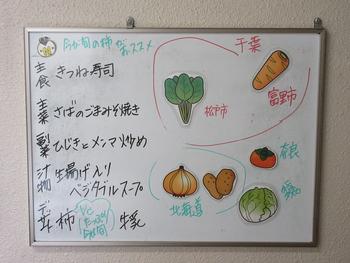 今が旬の柿がおススメ
主食 きつね寿司
主菜 さばのごまみそ焼き
副菜 ひじきとメンマ炒め
汁物 生揚げ入り
ベジタブルスープ
デザート 柿 牛乳
千葉
松戸市
富里市
奈良
愛知
北海道